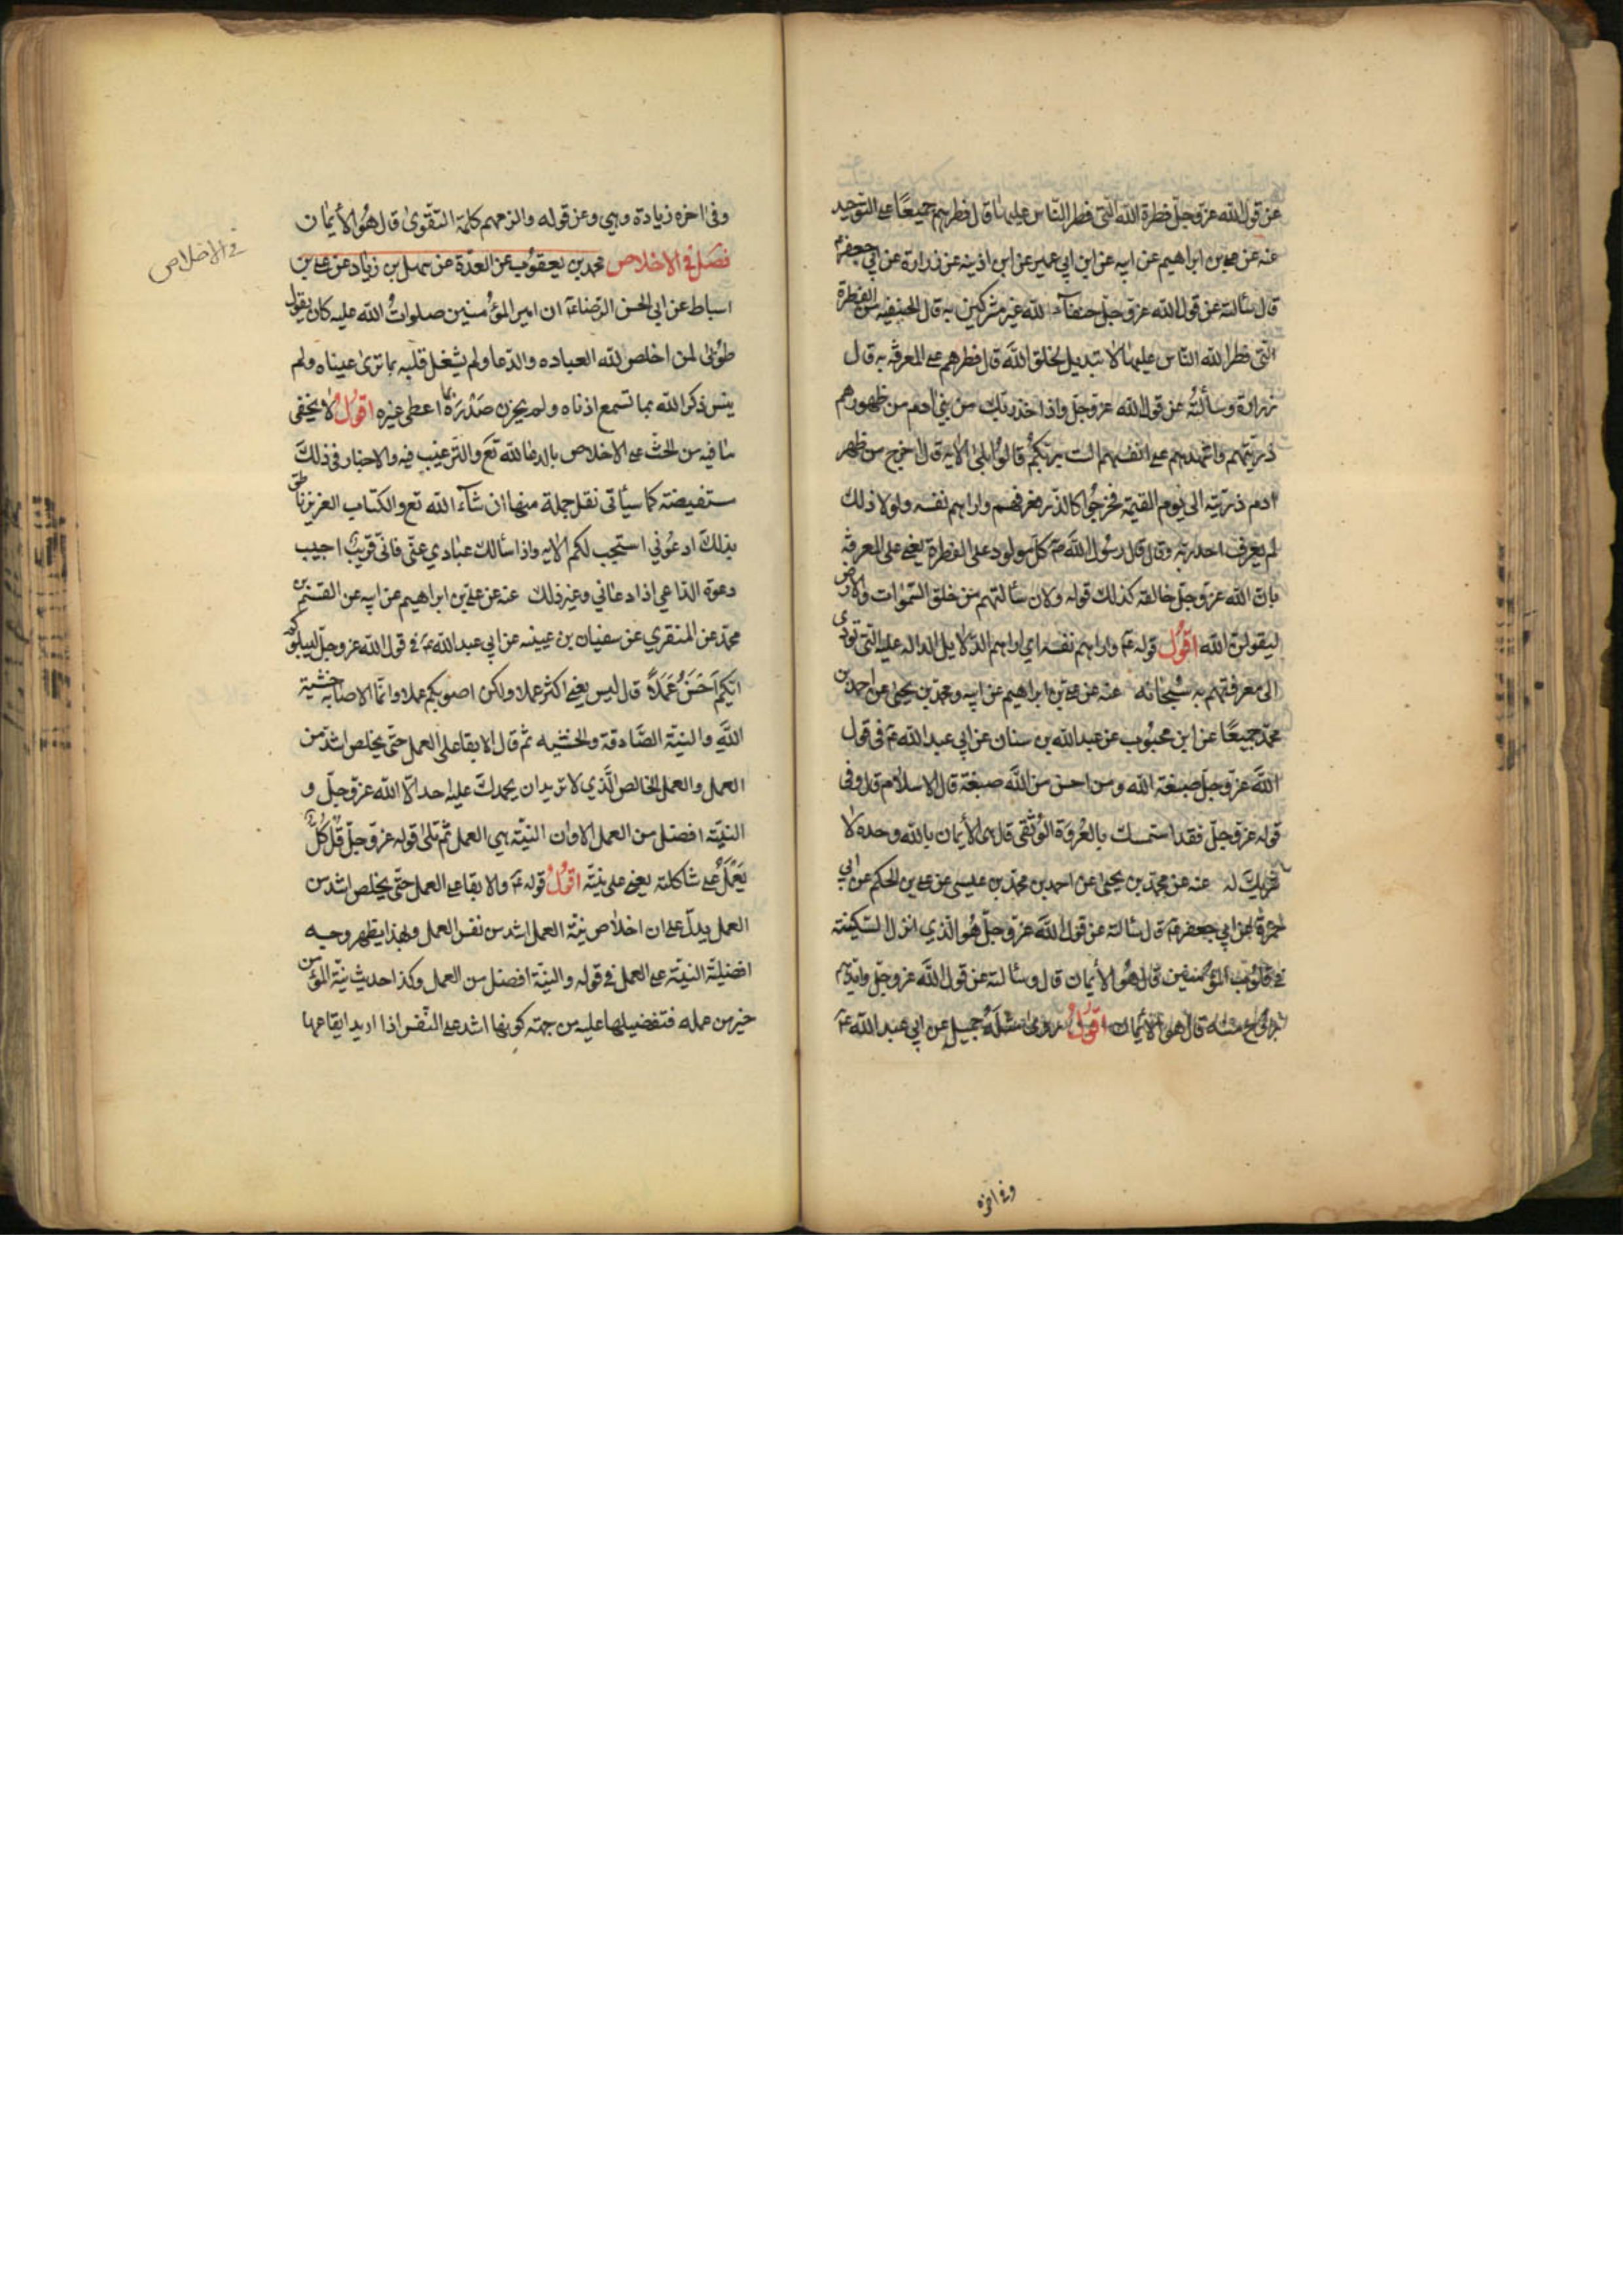 عن قول الله عزوجل فطرة الله التى فطر الناس عليها قال فطرهم جميعًا على التوحيد
عنه عن على بن ابراهيم عن ابيه عن ابن ابي عمير عن ابن اذينه عن زرارة عن ابي جعفر ع
قال سألته عن قول الله عزوجل حنفآء لله غير مشركين به قال الحنيفيه من الفطرة
التى فطر الله الناس عليها لا تبديل لخلق الله قال فطرهم على المعرفة به قال
زرارة وسألته عن قول الله عزوجل واذ اخذ ربك من بني ادم من ظهورهم
ذريتهم واشهدهم على انفسهم الست بربكم قالوا بلى الايه قال اخرج من ظهر
ادم ذريته الى يوم القيمة فخرجوا كالذر فعرفهم واراهم نفسه ولولا ذلك
لم يعرف احد ربه وقال قال رسول الله ص كل مولود على الفطرة يعني على المعرفة
بان الله عزوجل خالقه كذلك قوله ولان سألتهم من خلق السموات والارض
ليقولن الله اقول قوله ع واراهم نفسه اي اراهم الدلايل الداله عليه التى تؤدى
الى معرفتهم به سبحانه عنه عن على بن ابراهيم عن ابيه ومحمد بن يحيى عن احمد بن
محمد جميعًا عن ابن محبوب عن عبد الله بن سنان عن ابي عبد الله ع فى قول
الله عزوجل صبغة الله ومن احسن من الله صبغة قال الاسلام قال وفى
قوله عزوجل فقد استمسك بالعروة الوثقى قال هى الأيمان بالله وحده لا
شريك له عنه عن محمد بن يحيى عن احمد بن محمد بن عيسى عن على بن الحكم عن ابي
حمزة عن ابي جعفر ع قال سألته عن قول الله عزوجل هو الذي انزل السكينة
في قلوب المؤمنين قال هو الأيمان قال وسألته عن قول الله عزوجل وايدهم
بروح منه قال هو الأيمان اقول وروى مثله جميل عن ابي عبد الله ع
وفى اخره
وفى اخره زيادة وهي وعن قوله والزمهم كلمة التقوى قال هو الأيمان
فى الاخلاص
فصل فى الاخلاص محمد بن يعقوب عن العدة عن سهل بن زياد عن على بن
اسباط عن ابي الحسن الرضا ع ان امير المؤمنين صلوات الله عليه كان يقول
طوبى لمن اخلص لله العباده والدعا ولم يشغل قلبه بما ترى عيناه ولم
ينس ذكر الله بما تسمع اذناه ولم يحزن صدره بما اعطى غيره اقول لا يخفى
ما فيه من الحث على الاخلاص بالدعا لله تع والترغيب فيه والاخبار فى ذلك
مستفيضة كما سيأتى نقل جملة منها ان شآء الله تع والكتاب العزيز ناطق
بذلك ادعوني استجب لكم الايه واذا سألك عبادي عنى فانى قريب اجيب
دعوة الداعي اذا دعاني وغير ذلك عنه عن على بن ابراهيم عن ابيه عن القسم بن
محمد عن المنقري عن سفيان بن عيينه عن ابي عبد الله ع فى قول الله عزوجل ليبلوكم
ايكم احسن عملاً قال ليس يعني اكثر عملا ولكن اصوبكم عملا وانما الاصابه خشية
الله والنية الصادقة والخشيه ثم قال الابقا على العمل حتى يخلص اشد من
العمل والعمل الخالص الذي لا تريد ان يحمدك عليه احد الا الله عزوجل و
النية افضل من العمل الا وان النية هي العمل ثم تلى قوله عزوجل قل كل
يعمل على شاكلته يعني على نيته اقول قوله ع والابقا على العمل حتى يخلص اشد من
العمل يدل على ان اخلاص نية العمل اشد من نفس العمل وبهذا يظهر وجه
افضلية النية على العمل فى قوله والنية افضل من العمل وكذا حديث نية المؤمن
خير من عمله فتفضيلها عليه من جهة كونها اشد على النفس اذا اريد ايقاعها